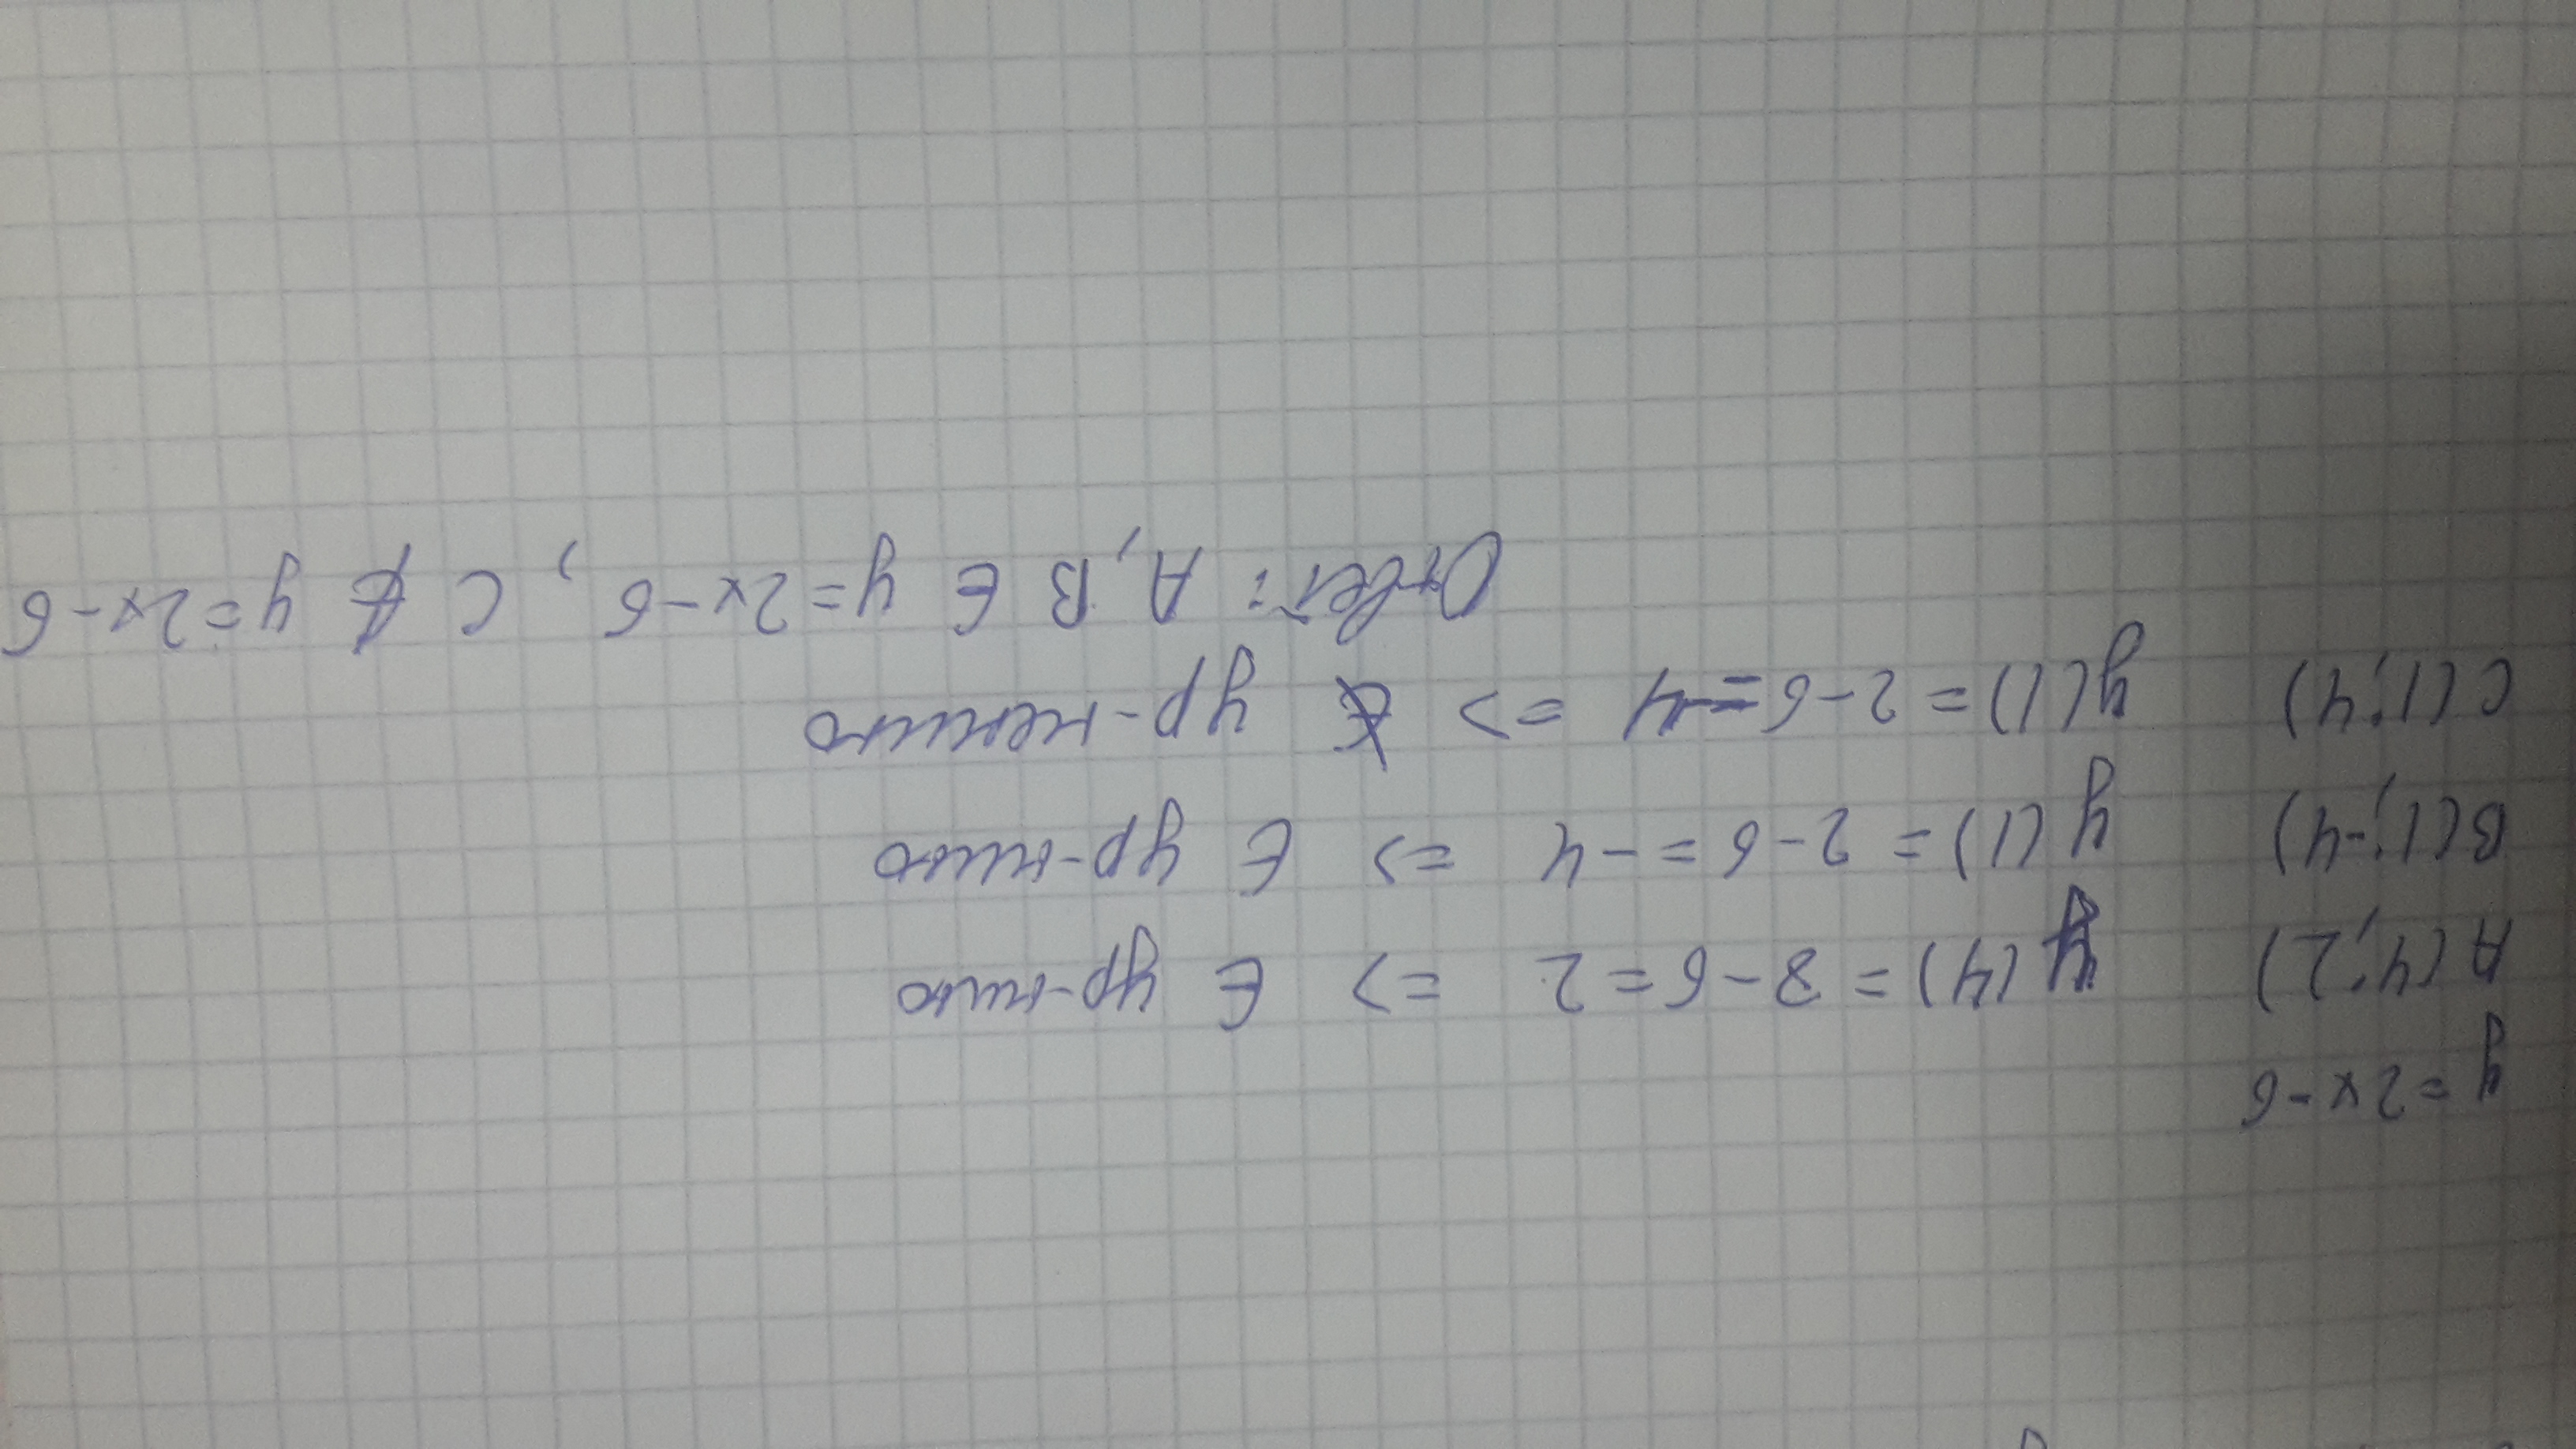 y = 2x - 6
A(4; 2) y(4) = 8 - 6 = 2 => ∈ ур-нию
B(1; -4) y(1) = 2 - 6 = -4 => ∈ ур-нию
C(1; 4) y(1) = 2 - 6 = -4 => ∉ ур-нению
Ответ: A, B ∈ y = 2x - 6, C ∉ y = 2x - 6